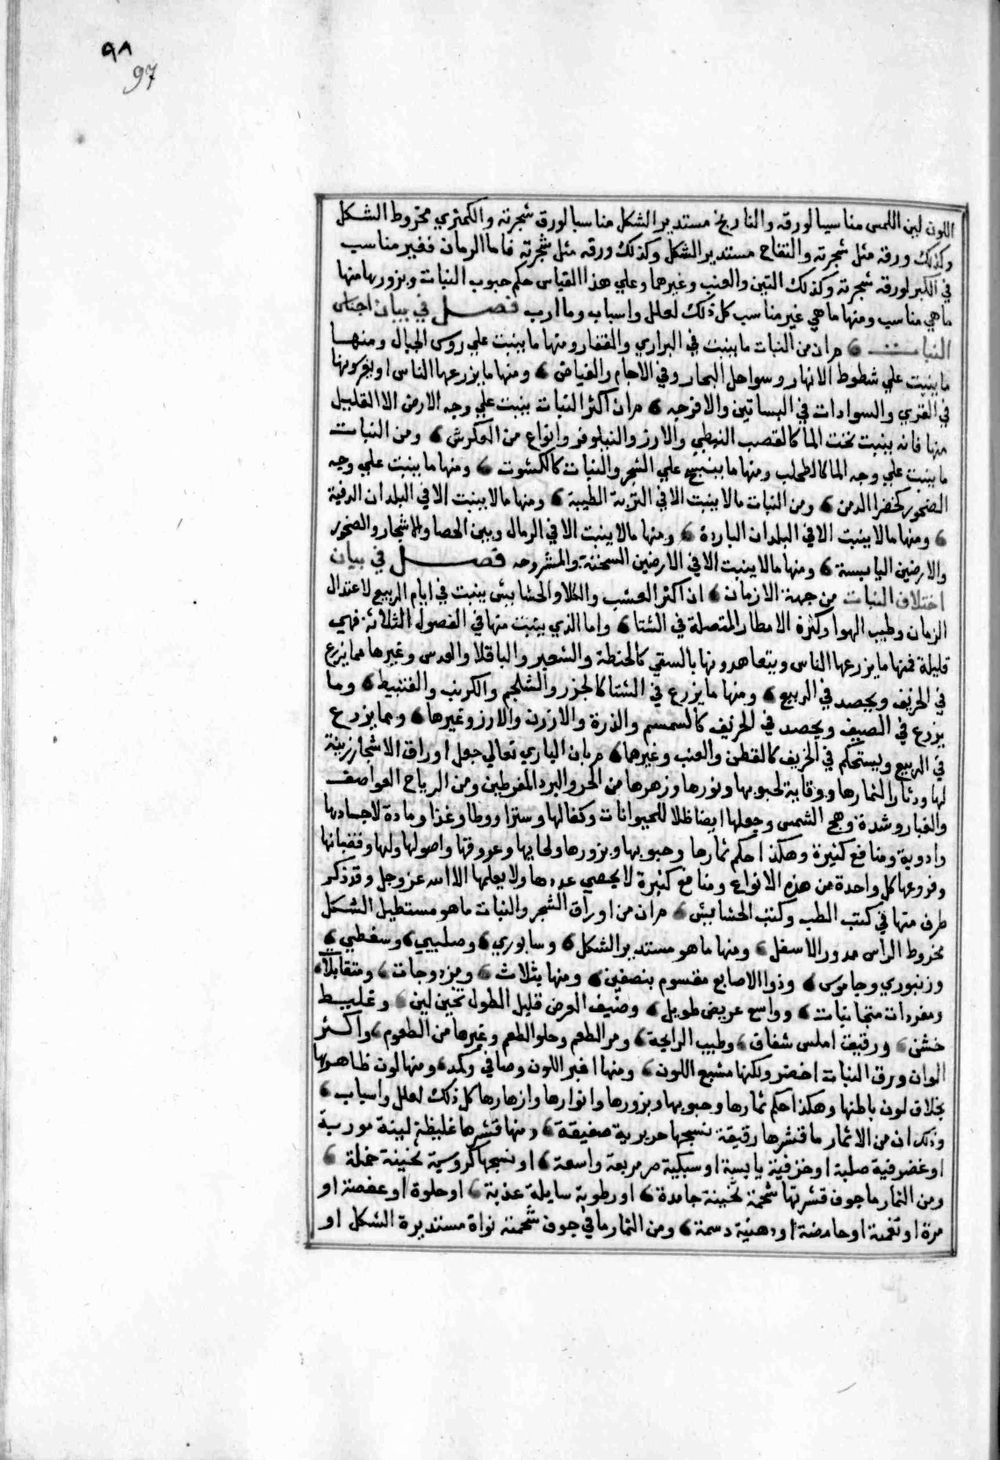 ٩٨
97
اللون لين اللمس مناسبا لورقه والنارنج مستدير الشكل مناسبا لورق شجرته والكمثري مخروط الشكل
وكذلك ورقه مثل شجرته والتفاح مستدير الشكل وكذلك ورقه مثل شجرته فاما الرمان فغير مناسب
في الكبر لورقه شجرته وكذلك التين والعنب وغيرهما وعلي هذا القياس حكم حبوب النبات وبزورها منها
ما هي مناسب ومنها ما هي غير مناسب كل ذلك لعلل واسباب وماارب فصل في بيان اجناس
النبات مران من النبات ما ينبت في البراري والقفار ومنها ما ينبت علي روس الجبال ومنها
ما ينبت علي شطوط الانهار وسواحل البحار وفي الاجام والغياض ومنها ما يزرعها الناس او يغرسونها
في القري والسوادات في البساتين والافرجه مران اكثر النبات ينبت علي وجه الارض الا القليل
منها فانه ينبت تحت الما كالقصب النبطي والارز والنيلوفر وانواع من العكرش ومن النبات
ما ينبت علي وجه الما كالطحلب ومنها ما ينسج علي الشجر والنبات كالكشوت ومنها ما ينبت علي وجه
الصخور كخضرا الدمن ومن النبات ما لا ينبت الا في التربة الطيبة ومنها ما لا ينبت الا في البلدان الدفية
ومنها ما لا ينبت الا في البلدان الباردة ومنها ما لا ينبت الا في الرمال وبين الحصا والاشجار والصخور
والارضين اليابسة ومنها ما لا ينبت الا في الارضين السخنة والمشروحه فصل في بيان
اختلاف النبات من جهة الازمان ان اكثر العشب والكلا والحشايش ينبت في ايام الربيع لاعتدال
الزمان وطيب الهوا وكثرة الامطار المتصلة في الشتا واما الذي ينبت منها في الفصول الثلاثه فهي
قليلة فمنها ما يزرعها الناس ويتعاهدونها بالسقي كالحنطة والشعير والباقلا والعدس وغيرها مما يزرع
في الخريف ويحصد في الربيع ومنها ما يزرع في الشتا كالجزر والشلجم والكرنب والقنبيط وما
يزرع في الصيف ويحصد في الخريف كالسمسم والذرة والارز وغيرها ومما يزرع
في الربيع ويستحكم في الخريف كالقطن والعنب وغيرهما مربان الباري تعالي جعل اوراق الاشجار زينة
لها ودثارا لثمارها ووقاية لحبوبها ونورها وزهرها من الحر والبرد المفرطين ومن الرياح العواصف
والغبار وشدة وهج الشمس وجعلها ايضا ظلا للحيوانات وكفالها وسترا ووطا وغذا ومادة لاجسادها
وادوية ومنافع كثيرة وهكذا حكم ثمارها وحبوبها وبزورها ولحايها وعروقها واصولها ولبها وقضبانها
وفروعها كل واحدة من هذه الانواع ومنافع كثيرة لا يحصي عددها ولا يعلمها الا الله عز وجل وقد ذكر
طرف منها في كتب الطب وكتب الحشايش مران من اوراق الشجر والنبات ما هو مستطيل الشكل
مخروط الراس مدور الاسفل ومنها ما هو مستدير الشكل وسابوري وصليبي وسغطبي
وزنبوري وجاموس وذوا الاصابع مقسوم بنصفين ومنها بثلاث ومزدوجات ومتقابلات
ومفردات متجانبات وواسع عريض طويل وضيف العرض قليل الطول ثخين لين وغليظ
خشن ورقيق املس شفاف وطيب الرايحة ومر الطعم وحلو الطعم وغيرها من الطعوم واكثر
الوان ورق النبات اخضر ولكنها مشبع اللون ومنها اغبر اللون وصافي وكمد ومنها لون ظاهرها
بخلاف لون باطنها وهكذا حكم ثمارها وحبوبها وبزورها وانوارها وازهارها كل ذلك لعلل واسباب
وذلك ان من الاثمار ما قشرها رقيقة نسجها حريرية صفيقة ومنها قشرها غليظة لينة موربة
او غضروفية صلبة او خزفية يابسة او سبكية مرمربعة واسعة او نسجها كروسية ثخينة خملة
ومن الثمار ما جوف قشرتها شحمة ثخينة جامدة او رطوبة سايلة عذبة او حلوة او عفصة او
مرة او تغمنة او حامضة او دهنية دسمة ومن الثمار ما في جوف شحمته نواة مستديرة الشكل او